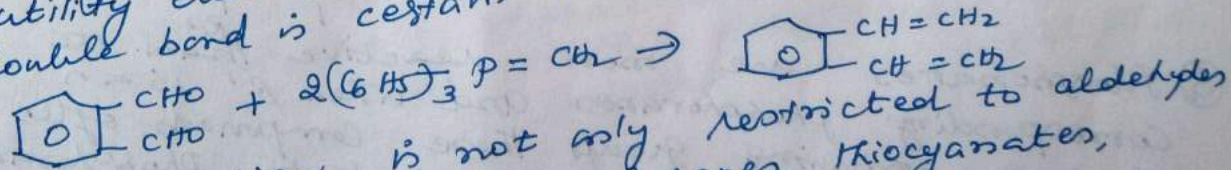 double bond is
CHO + 2(C6H5)3 P = CH2 → CH = CH2
CHO CH = CH2
is not only restricted to aldehydes
thiocyanates,